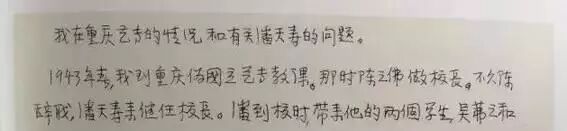 我在重庆艺专的情况和有关潘天寿的问题。
1943年春,我到重庆伪国立艺专教课。那时陈之佛做校长。不久陈
辞职,潘天寿来继任校长。潘到校时,带来他的两個学生,吴茀之和